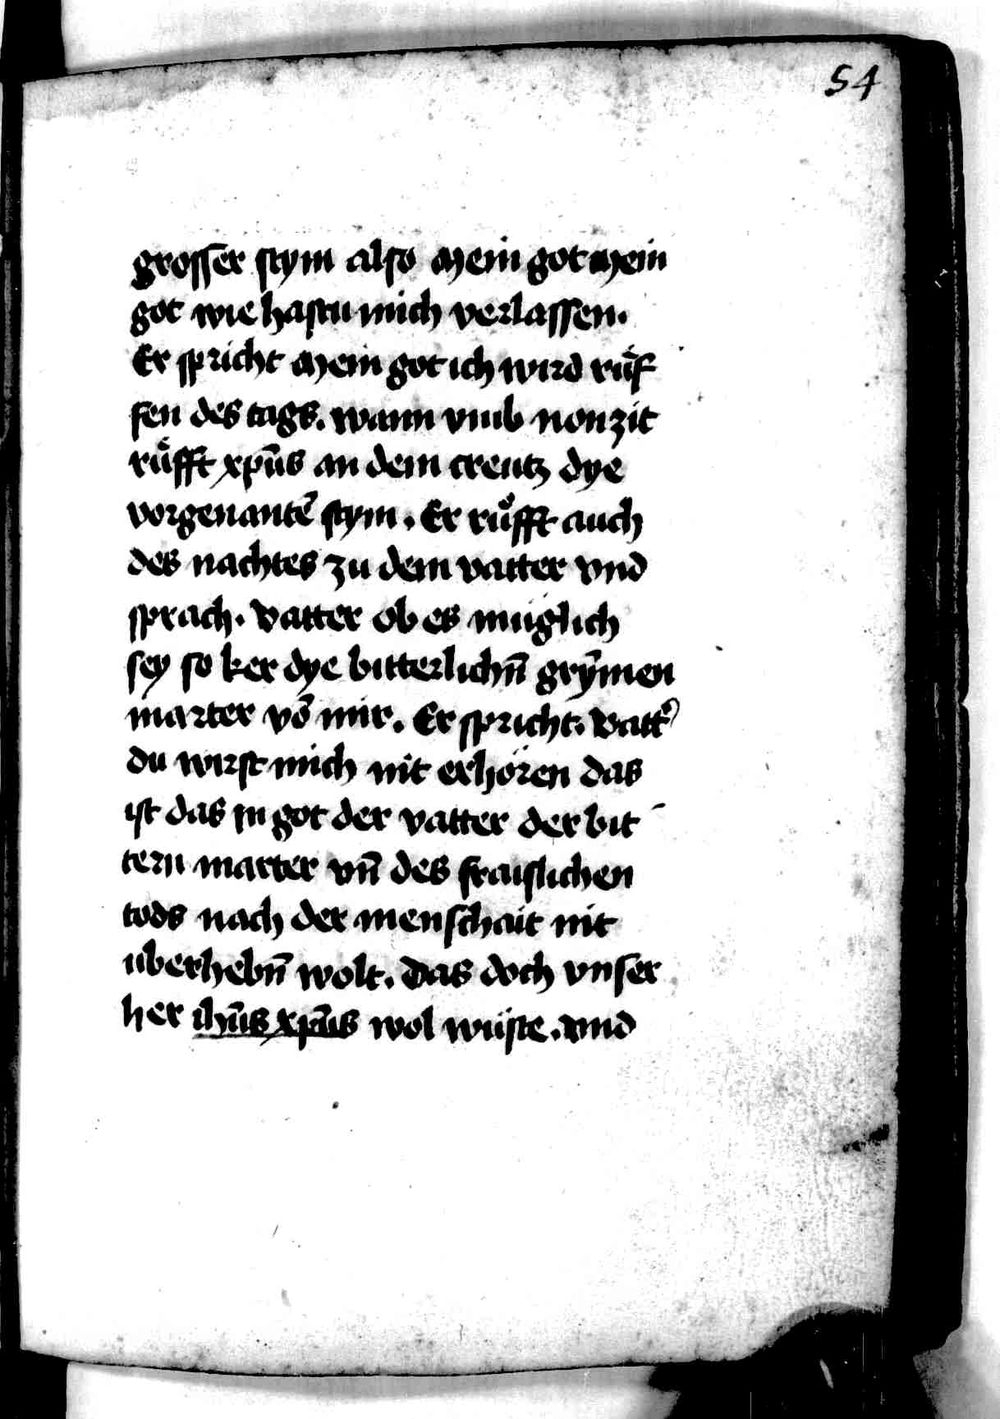 54
grosser stym also Mein got mein
got wie hastu mich verlassen.
Er spricht Mein got ich wird rüͤf
fen des tags. wann vmb nonzit
ruͤfft xpūs an dem creutz dye
vorgenantē stym. Er ruͤfft auch
des nachtes zu dem vatter vnd
sprach. Vatter ob es müglich
sey so ker dye bitterlichn̄ grȳmen
marter vō mir. Er spricht. Vatt᾽
du wirst mich nit erhören das
ist das in got der vatter der bit
tern marter vn̄ des fraislichen
tods nach der menschait nit
uberhebn̄ wolt. Das doch vnser
her ihūs xpūs wol wüste. vnd